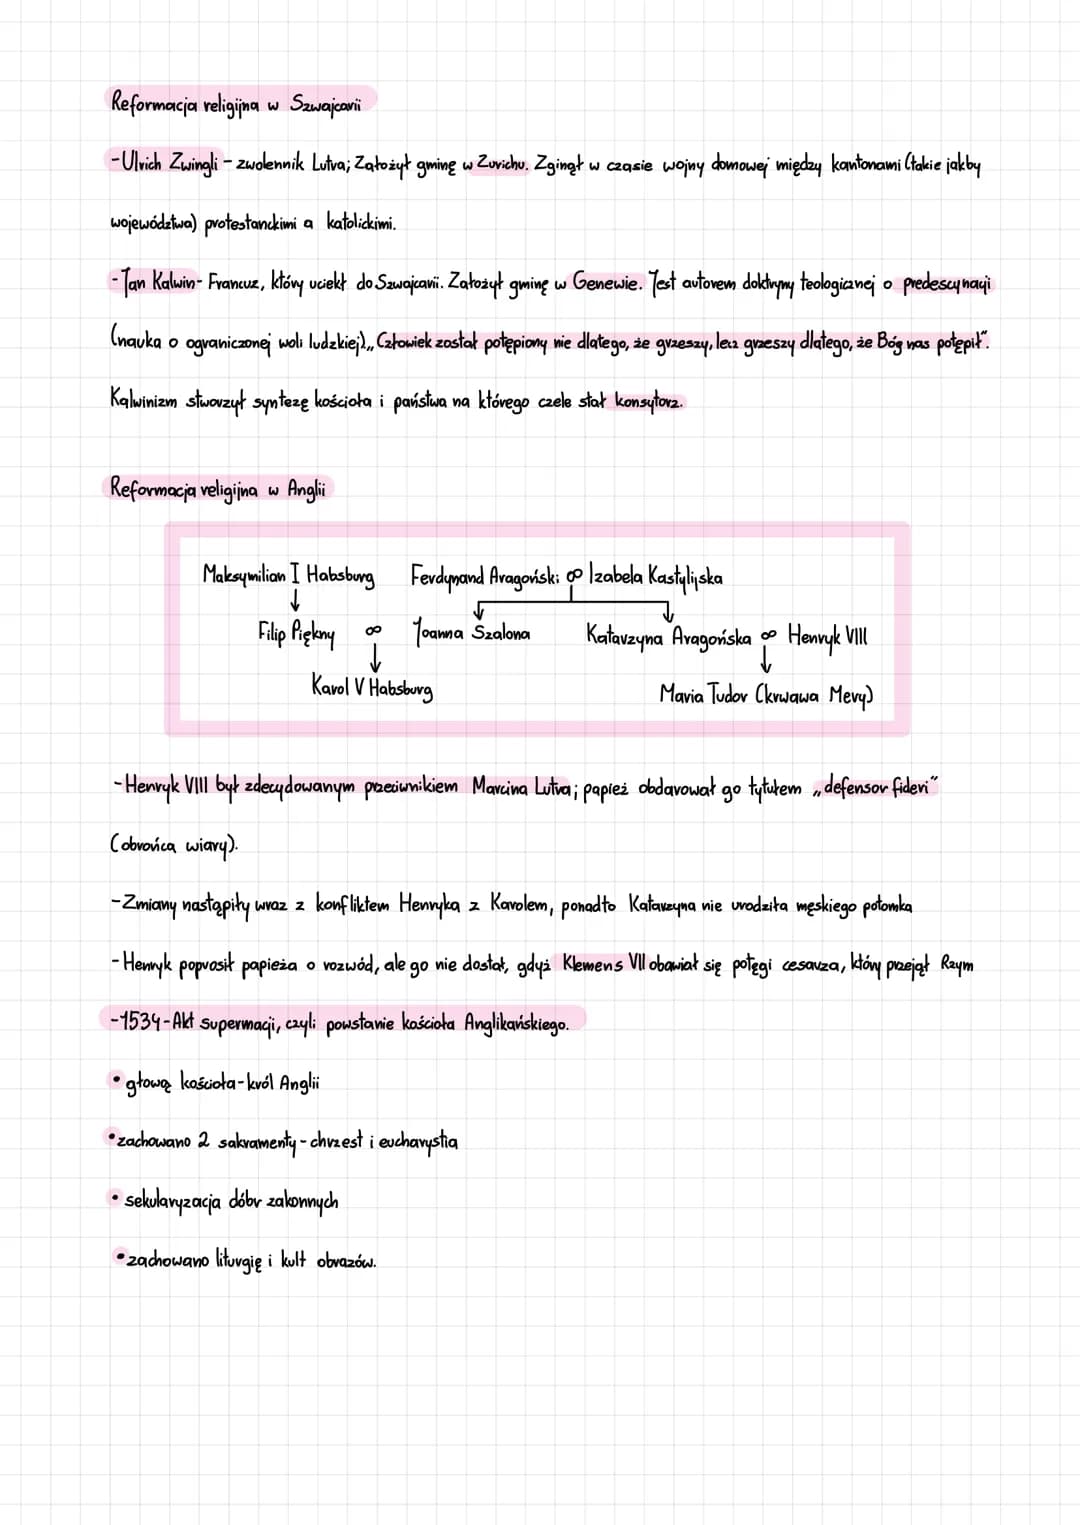 Reformacja religijna w Szwajcarii
-Ulrich Zwingli - zwolennik Lutra; Założył gminę w Zurichu. Zginął w czasie wojny domowej między kantonami (takie jakby
województwa) protestanckimi a katolickimi.
-Jan Kalwin- Francuz, który uciekł do Szwajcarii. Założył gminę w Genewie. Jest autorem doktryny teologicznej o predescynacji
(nauka o ograniczonej woli ludzkiej) „Człowiek został potępiony nie dlatego, że grzeszy, lecz grzeszy dlatego, że Bóg nas potępił".
Kalwinizm stworzył syntezę kościoła i państwa na którego czele stał konsytorz.
Reformacja religijna w Anglii
Maksymilian I Habsburg Ferdynand Aragoński ∞ Izabela Kastylijska
↓
Filip Piękny ∞ Joanna Szalona Katarzyna Aragońska ∞ Henryk VIII
↓ ↓
Karol V Habsburg Maria Tudor (krwawa Mery)
-Henryk VIII był zdecydowanym przeciwnikiem Marcina Lutra; papież obdarował go tytułem „defensor fideri"
(obrońca wiary).
-Zmiany nastąpiły wraz z konfliktem Henryka z Karolem, ponadto Katarzyna nie urodziła męskiego potomka
-Henryk poprosił papieża o rozwód, ale go nie dostał, gdyż Klemens VII obawiał się potęgi cesarza, który przejął Rzym
-1534-Akt supermacji, czyli powstanie kościoła Anglikańskiego.
• głową kościoła-król Anglii
•zachowano 2 sakramenty-chrzest i eucharystia
• sekularyzacja dóbr zakonnych
•zachowano liturgię i kult obrazów.